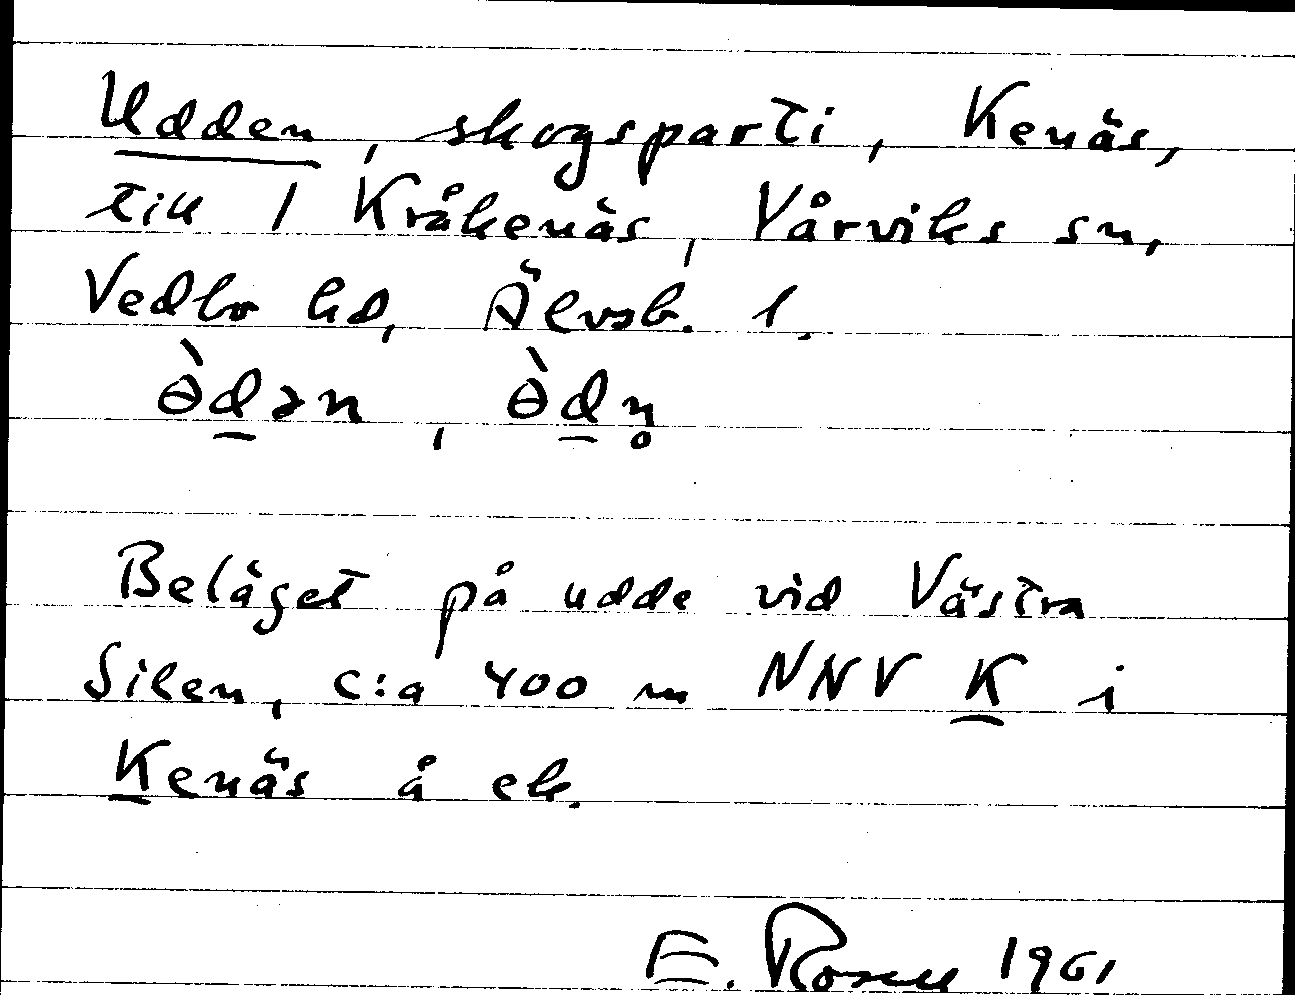 Udden, skogsparti, Kenäs,
till 1 Kråkenäs, Vårviks sn,
Vedbo hd, Älvsb. l.
ɵ̀d̠ən, ɵ̀d̠n̥
Beläget på udde vid Västra
Silen, c:a 400 m NNV K i
Kenäs å ek.
E. Rosell 1961